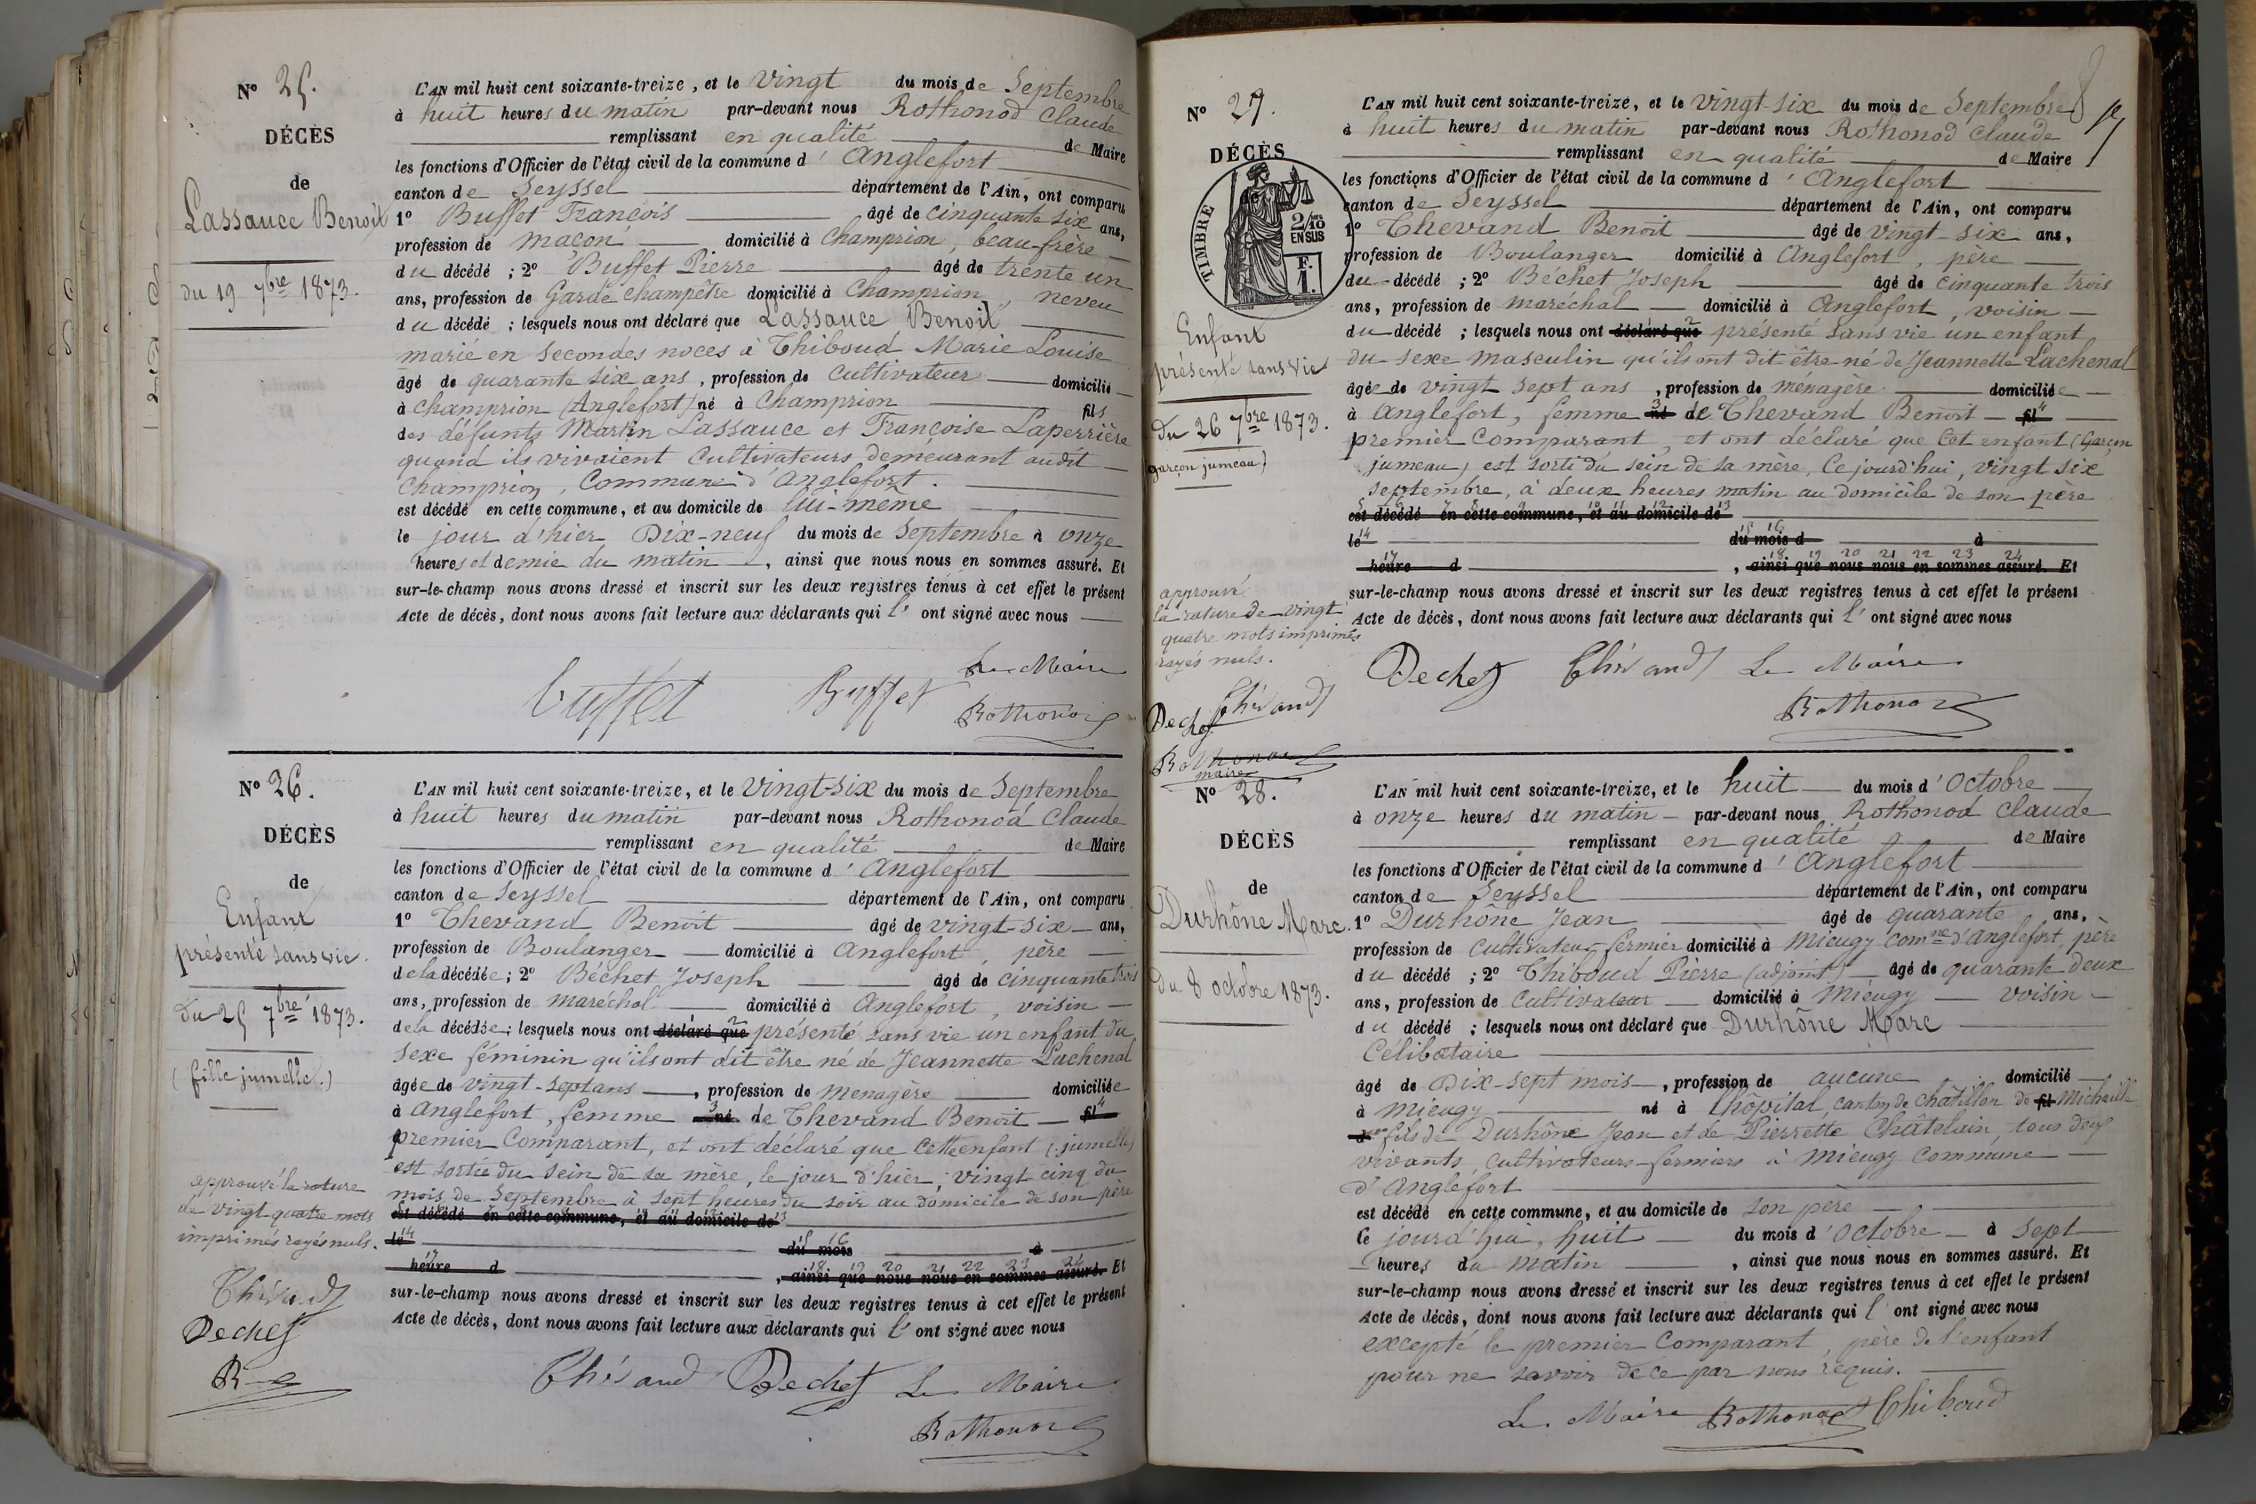 N° 25.
DÉCÈS
de
Lassauce Benoit
du 19 7bre 1873.
L'AN mil huit cent soixante-treize, et le vingt du mois de Septembre
à huit heures du matin par-devant nous Rothonod Claude
remplissant en qualité de Maire
les fonctions d'Officier de l'état civil de la commune d'Anglefort
canton de Seyssel département de l'Ain, ont comparu
1° Buffet François âgé de cinquante six ans,
profession de maçon domicilié à Champrion, beau-frère
du décédé ; 2° Buffet Pierre âgé de trente un
ans, profession de Garde champêtre domicilié à Champrion, neveu
du décédé ; lesquels nous ont déclaré que Lassauce Benoit
marié en secondes noces à Thiboud Marie Louise
âgé de quarante six ans, profession de Cultivateur domicilié
à Champrion (Anglefort) né à Champrion fils
des défunts Martin Lassauce et Françoise Laperrière
quand ils vivaient Cultivateurs demeurant audit
Champrion, Commune d'Anglefort.
est décédé en cette commune, et au domicile de lui-même
le jour d'hier Dix-neuf du mois de Septembre à onze
heures et demie du matin, ainsi que nous nous en sommes assuré. Et
sur-le-champ nous avons dressé et inscrit sur les deux registres tenus à cet effet le présent
Acte de décès, dont nous avons fait lecture aux déclarants qui l' ont signé avec nous
Buffet Buffet Le Maire
Rothonod
N° 26.
DÉCÈS
de
Enfant
présenté sans vie.
Du 25 7bre 1873.
(fille jumelle.)
approuvé la rature
de vingt quatre mots
imprimés rayés nuls.
Thévand
Bechet
L'AN mil huit cent soixante-treize, et le vingt-six du mois de Septembre
à huit heures du matin par-devant nous Rothonod Claude
remplissant en qualité de Maire
les fonctions d'Officier de l'état civil de la commune d'Anglefort
canton de Seyssel département de l'Ain, ont comparu
1° Thevand Benoit âgé de vingt-six ans,
profession de Boulanger domicilié à Anglefort, père
de la décédée ; 2° Béchet Joseph âgé de cinquante trois
ans, profession de maréchal domicilié à Anglefort, voisin
de la décédée ; lesquels nous ont déclaré que présenté sans vie un enfant du
sexe féminin qu'ils ont dit être né de Jeannette Lachenal
âgée de vingt-sept ans, profession de menagère domiciliée
à Anglefort, femme né de Thevand Benoit fil
premier Comparant, et ont déclaré que Cette enfant (jumelle)
est sortie du sein de sa mère, le jour d'hier, vingt cinq du
mois de Septembre à sept heures du soir au domicile de son père
est décédé en cette commune, et au domicile de
le du mois à
heure d, ainsi que nous nous en sommes assuré. Et
sur-le-champ nous avons dressé et inscrit sur les deux registres tenus à cet effet le présent
Acte de décès, dont nous avons fait lecture aux déclarants qui l' ont signé avec nous
Thévand Bechet Le Maire
Rothonod
N° 27.
DÉCÈS
TIMBRE
2/10 EN SUS
F. 1.
Enfant
présenté sans vie
du 26 7bre 1873.
garçon jumeau)
approuvé
la rature de vingt
quatre mots imprimés
rayés nuls.
Thévand
Bechet
Rothonod
maire
L'AN mil huit cent soixante-treize, et le vingt-six du mois de Septembre
à huit heures du matin par-devant nous Rothonod Claude
remplissant en qualité de Maire
les fonctions d'Officier de l'état civil de la commune d'Anglefort
canton de Seyssel département de l'Ain, ont comparu
1° Thevand Benoit âgé de vingt-six ans,
profession de Boulanger domicilié à Anglefort, père
du décédé ; 2° Béchet Joseph âgé de cinquante trois
ans, profession de maréchal domicilié à Anglefort, voisin
du décédé ; lesquels nous ont déclaré que présenté sans vie un enfant
du sexe masculin qu'ils ont dit être né de Jeannette Lachenal
âgée de vingt sept ans, profession de menagère domiciliée
à Anglefort, femme né de Thevand Benoit fil
premier Comparant, et ont déclaré que cet enfant (Garçon
jumeau) est sorti du sein de sa mère, ce jourd'hui, vingt six
septembre, à deux heures matin au domicile de son père
est décédé en cette commune, et au domicile de
le du mois d à
heure d, ainsi que nous nous en sommes assuré. Et
sur-le-champ nous avons dressé et inscrit sur les deux registres tenus à cet effet le présent
Acte de décès, dont nous avons fait lecture aux déclarants qui l' ont signé avec nous
Bechet Thévand Le Maire
Rothonod
N° 28.
DÉCÈS
de
Durhône Marc.
Du 8 octobre 1873.
L'AN mil huit cent soixante-treize, et le huit du mois d'Octobre
à onze heures du matin par-devant nous Rothonod Claude
remplissant en qualité de Maire
les fonctions d'Officier de l'état civil de la commune d'Anglefort
canton de Seyssel département de l'Ain, ont comparu
1° Durhône Jean âgé de quarante ans,
profession de Cultivateur-fermier domicilié à Mieugy comne d'Anglefort, père
du décédé ; 2° Thiboud Pierre (adjoint) âgé de quarante deux
ans, profession de Cultivateur domicilié à Miéugy voisin
du décédé ; lesquels nous ont déclaré que Durhône Marc
Célibataire
âgé de Dix-sept mois, profession de aucune domicilié
à Mieugy né à Lhôpital, canton de Chatillon de fil Michaille
fils de Durhône Jean et de Pierrette Châtelain, tous deux
vivants, cultivateurs-fermiers à Mieugy commune
d'Anglefort
est décédé en cette commune, et au domicile de son père
le jourd'hui, huit du mois d'Octobre à sept
heures du matin, ainsi que nous nous en sommes assuré. Et
sur-le-champ nous avons dressé et inscrit sur les deux registres tenus à cet effet le présent
Acte de décès, dont nous avons fait lecture aux déclarants qui l' ont signé avec nous
excepté le premier Comparant, père de l'enfant
pour ne savoir de ce par nous requis.
Le Maire Rothonod Thiboud